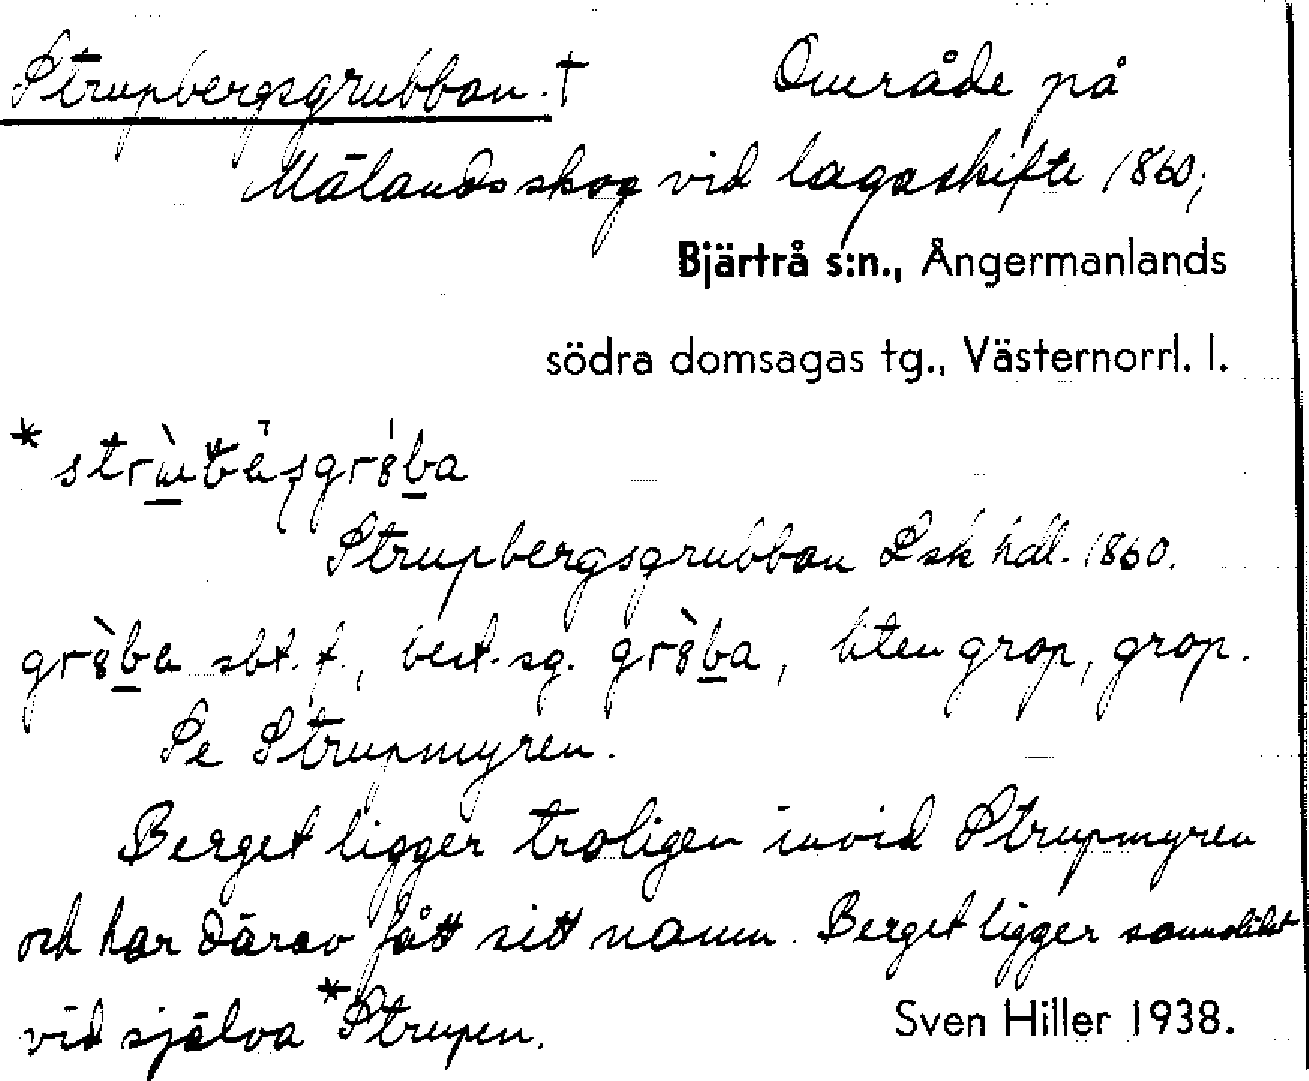 Strupbergsgrubban. † Område på
Mälandsskog vid lagaskifte 1860,
Bjärtrå s:n., Ångermanlands
södra domsagas tg., Västernorrl. l.
Strupbergsgrubban Lsk hdl. 1860.
sbt. f., best. sg. liten grop, grop.
Se Strupmyren.
Berget ligger troligen invid Strupmyren
och har därav fått sitt namn. Berget ligger sannolikt
vid själva *Strupen. Sven Hiller 1938.